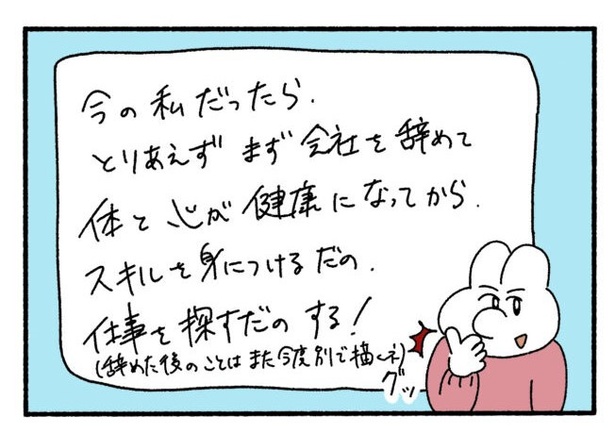 今の私だったら、
とりあえず まず 会社を辞めて
体と心が健康になってから、
スキルを身につけるだの、
仕事を探すだの する!
(辞めた後のことは また今度別で描くネ)
グッ